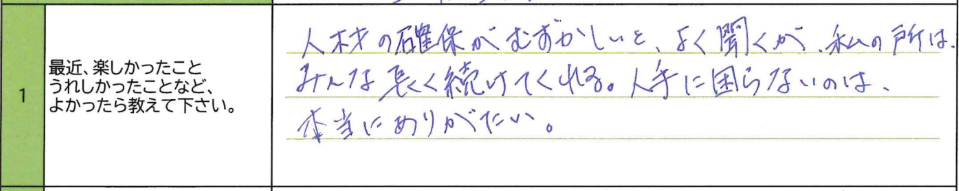 1
最近、楽しかったこと
うれしかったことなど、
よかったら教えて下さい。
人材の確保がむずかしいと、よく聞くが、私の所は、
みんな長く続けてくれる。人手に困らないのは、
本当にありがたい。